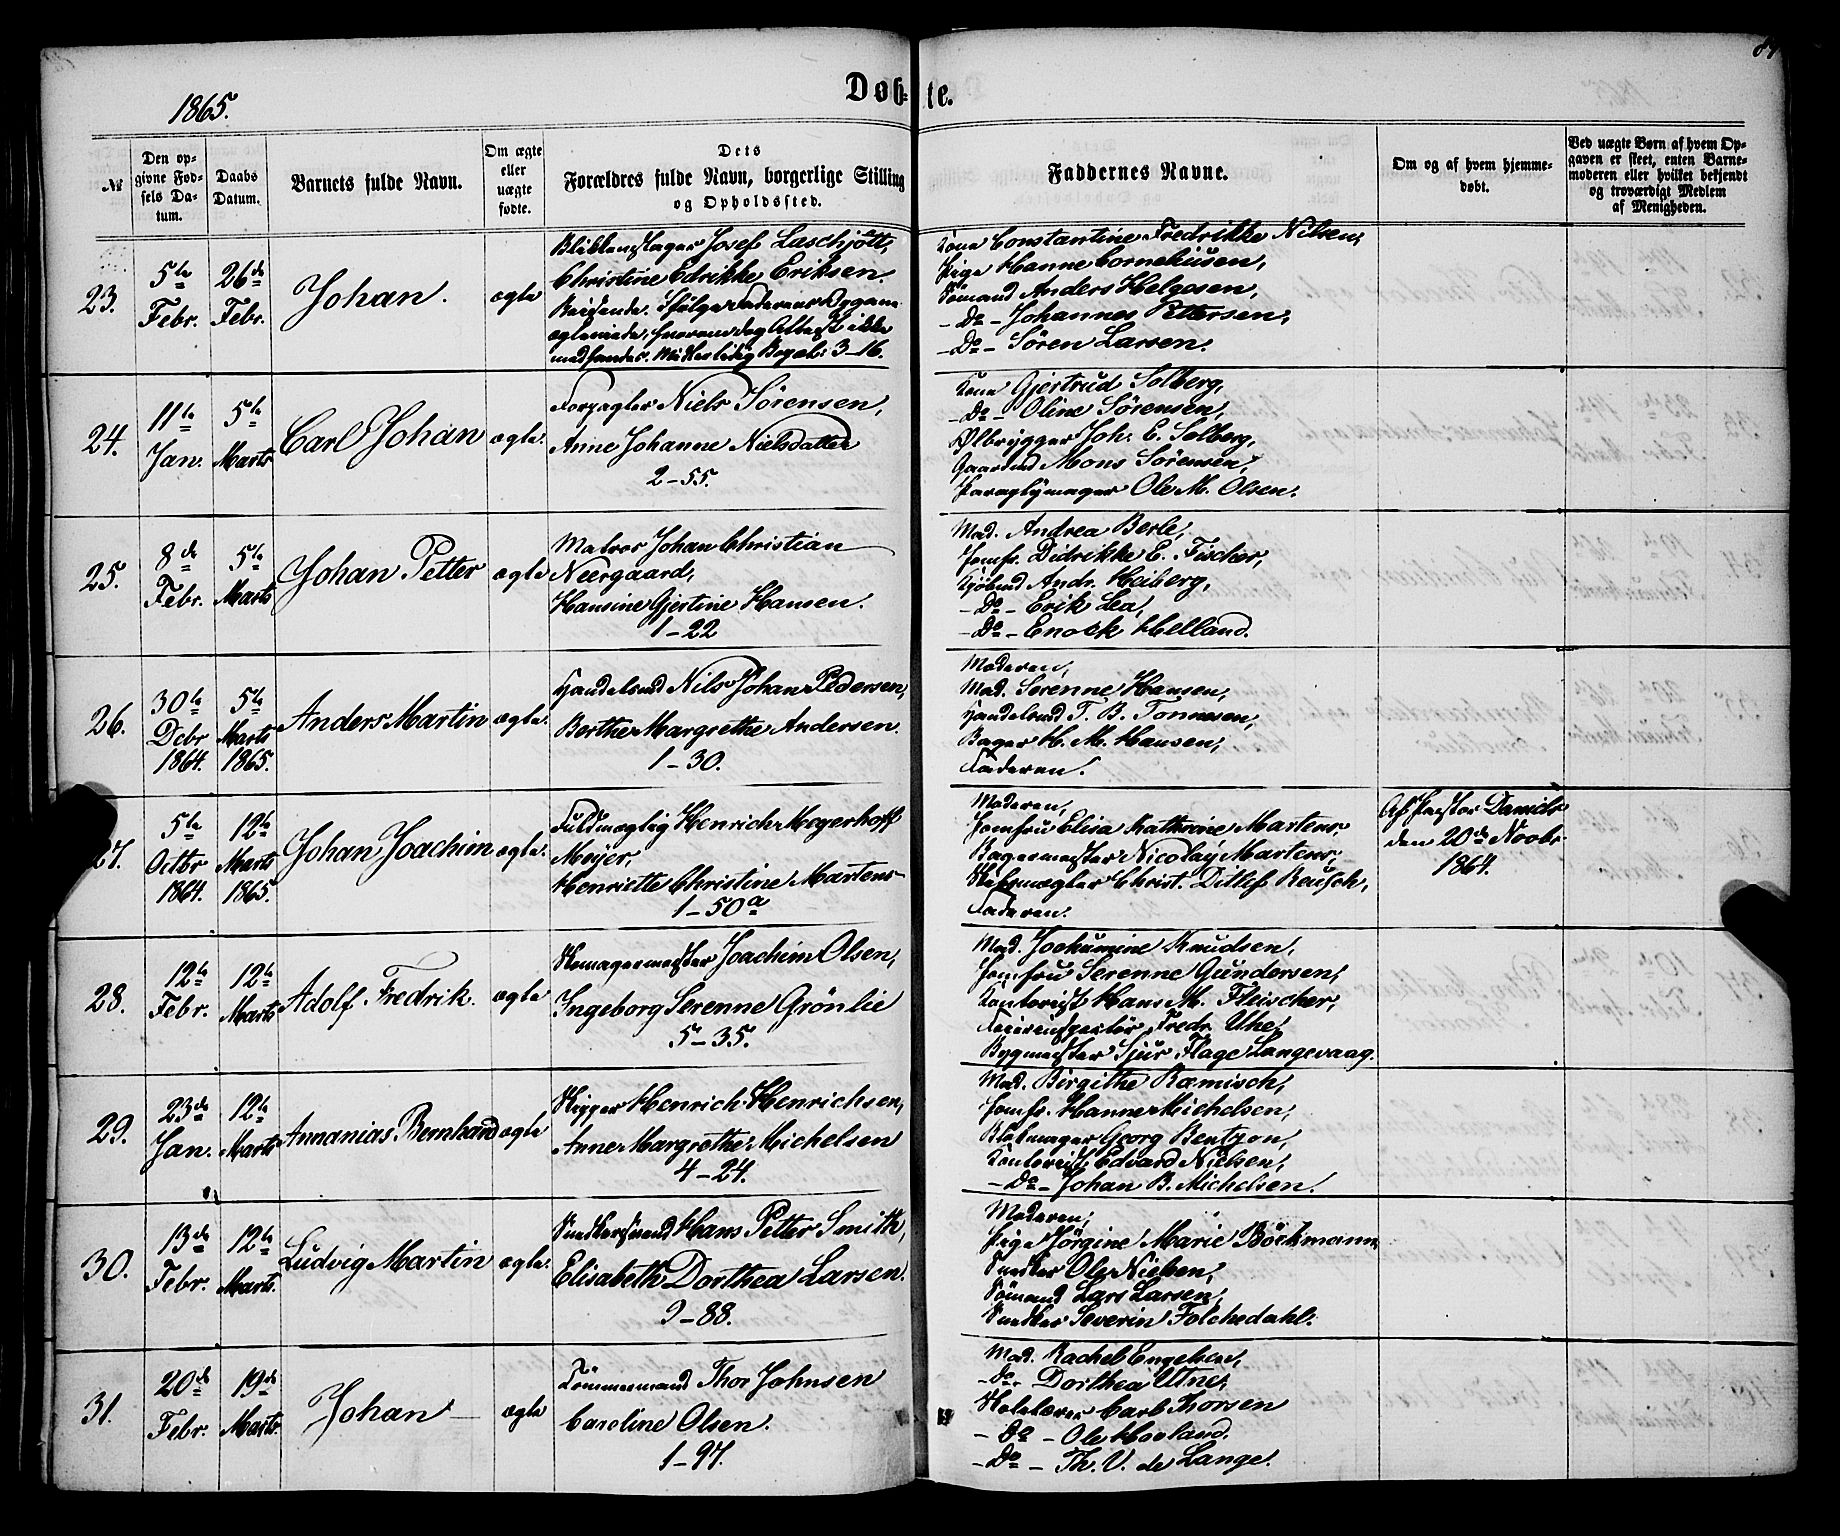 1865.
Døb-te.
№
Den opgivne Fødsels Datum.
Daabs Datum.
Barnets fulde Navn.
Om ægte eller uægte fødte.
Dets Forældres fulde Navn, borgerlige Stilling og Opholdssted.
Faddernes Navne.
Om og af hvem hjemmedøbt.
Ved uægte Børn af hvem Opgaven er skeet, enten Barnemoderen eller hvilket bekjendt og troværdigt Medlem af Menigheden.
23.
5te Febr.
26de Febr.
Johan.
ægte
Blikkenslager Josef Laschjött,
Christine Edrikke Eriksen.
Reisende. Ifølge Faderens Opgave
3-16.
Kone Constantine Fredrikke Nilsen,
Pige Hanne Corneliusen,
Sømand Anders Helgesen,
- Do - Johannes Pettersen,
- Do - Søren Larsen.
24.
11te Jan.
5te Marts
Carl Johan
ægte.
Forpagter Niels Sørensen,
Anne Johanne Nielsdatter
2-55.
Kone Gjertrud Solberg,
- Do - Oline Sørensen,
Ølbrygger Joh. E. Solberg,
Gaardmd Mons Sørensen,
Paraplymager Ole M. Olsen.
25.
8de Febr.
5te Marts
Johan Petter
ægte
Matros Johan Christian
Neergaard,
Hansine Gjertine Hansen.
1-22
Mad. Andrea Berle,
Jomfr. Didrikke E. Fischer,
Kjøbmd Andr. Heiberg,
- Do - Erik Lea,
- Do - Enock Helland.
26.
30te Dcbr 1864.
5te Marts 1865.
Anders Martin
ægte.
Handelsmd Nils Johan Pedersen,
Berthe Margrethe Andersen.
1-30.
Moderen,
Mad. Serenne Hansen,
Handelsmd T. B. Tonnesen,
Bager H. M. Hansen,
Faderen.
27.
5te Octbr 1864.
12te Marts 1865.
Johan Joachim
ægte.
Fuldmægtig Henrich Meyerhoff
Meyer,
Henriette Christine Martens
1-50a
Moderen,
Jomfru Elisa Kathrine Martens,
Bagermester Nicolay Martens,
Christ. Ditlef Reusch,
Faderen.
Af Pastor Daniels
den 20de Novbr
1864.
28.
12te Febr.
12te Marts
Adolf Fredrik.
ægte
Skomagermester Joachim Olsen,
Ingeborg Serenne Grönlie
5-35.
Mad. Jochumine Knudsen,
Jomfru Serenne Gundersen,
Kontorist Hans M. Fleischer,
Fredr. Uhe,
Bygmester Sjur Flage Langevaag.
29.
23de Jan.
12te Marts
Annanias Bernhard
ægte
Skipper Henrich Henrichsen,
Anne Margrethe Michelsen
4-24.
Mad. Birgithe Ræmisch,
Jomfr. Hanne Michelsen,
Blokmager Georg Bentzon,
Kontorist Edvard Nielsen,
- Do - Johan B. Michelsen.
30.
13de Febr.
12te Marts.
Ludvig Martin
ægte.
Snedkersvend Hans Petter Smith,
Elisabeth Dorthea Larsen.
9-88.
Moderen,
Pige Jörgine Marie Böckmann,
Snedker Ole Nielsen,
Sømand Lars Larsen,
Snedker Severin Folchedahl.
31.
20de Febr.
19de Marts.
Johan
ægte
Tømmermand Thor Johnsen
Caroline Olsen.
1-97.
Mad. Rachel Engelsen,
- Do - Dorthea Utne,
Skolelærer Carl Thorsen
- Do - Ole Hovland.
- Do - Th. V. de Lange.